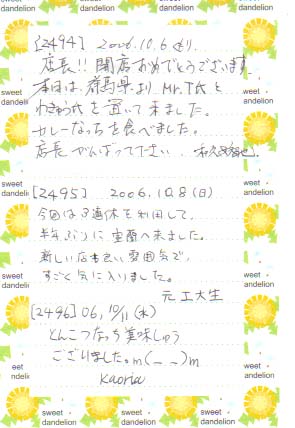 [2494] 2006.10.6(金).
店長!!開店おめでとうございます
本日は、群馬県より Mr.T氏と
氏を置いて来ました。
カレーなっちを食べました。
店長がんばって下さい。
[2495] 2006.10.8(日)
今回は3連休を利用して、
半年ぶりに室蘭へ来ました。
新しい店も良い雰囲気で、
すごく気に入りました。
元工大生
[2496] 06, 10/11(水)
とんこつなっち美味しゅう
ございました。m(_ _)m
kaoria
sweet dandelion
sweet dandelion
sweet dandelion
sweet dandelion
sweet dandelion
sweet dandelion
sweet dandelion